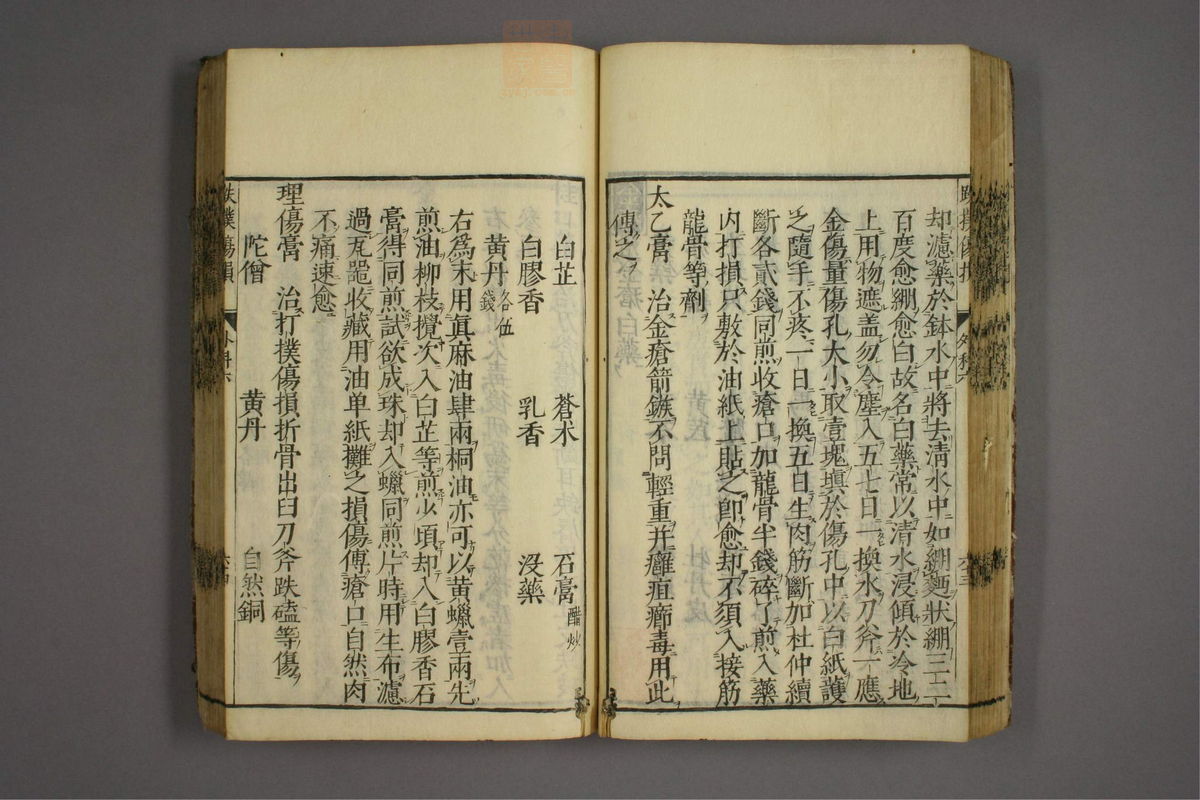 却濾藥於鉢水中將去清水中如綳麪狀綳三二
百度愈綳愈白故名白藥常以清水浸傾於冷地
上用物遮盖勿令塵入五七日一換水刀斧一應
金傷量傷孔大小取壹塊塡於傷孔中以白紙護
之隨手不疼一日一換五日生肉筋斷加杜仲續
斷各貳錢同煎收瘡口加龍骨半錢碎了煎入藥
内打損只敷於油紙上貼之卽愈却不須入接筋
龍骨等劑
太乙膏 治金瘡箭鏃不問輕重并癰疽癤毒用此
傅之
白芷 蒼朮 石膏醋炒
白膠香 乳香 没藥
黄丹各伍錢
右爲末用眞麻油肆兩桐油亦可以黄蠟壹兩先
煎油柳枝攪次入白芷等煎少頃却入白膠香石
膏得同煎試欲成珠却入蠟同煎片時用生布濾
過瓦器收藏用油单紙攤之損傷傅瘡口自然肉
不痛速愈
理傷膏 治打撲傷損折骨出臼刀斧跌磕等傷
陀僧 黄丹 自然銅